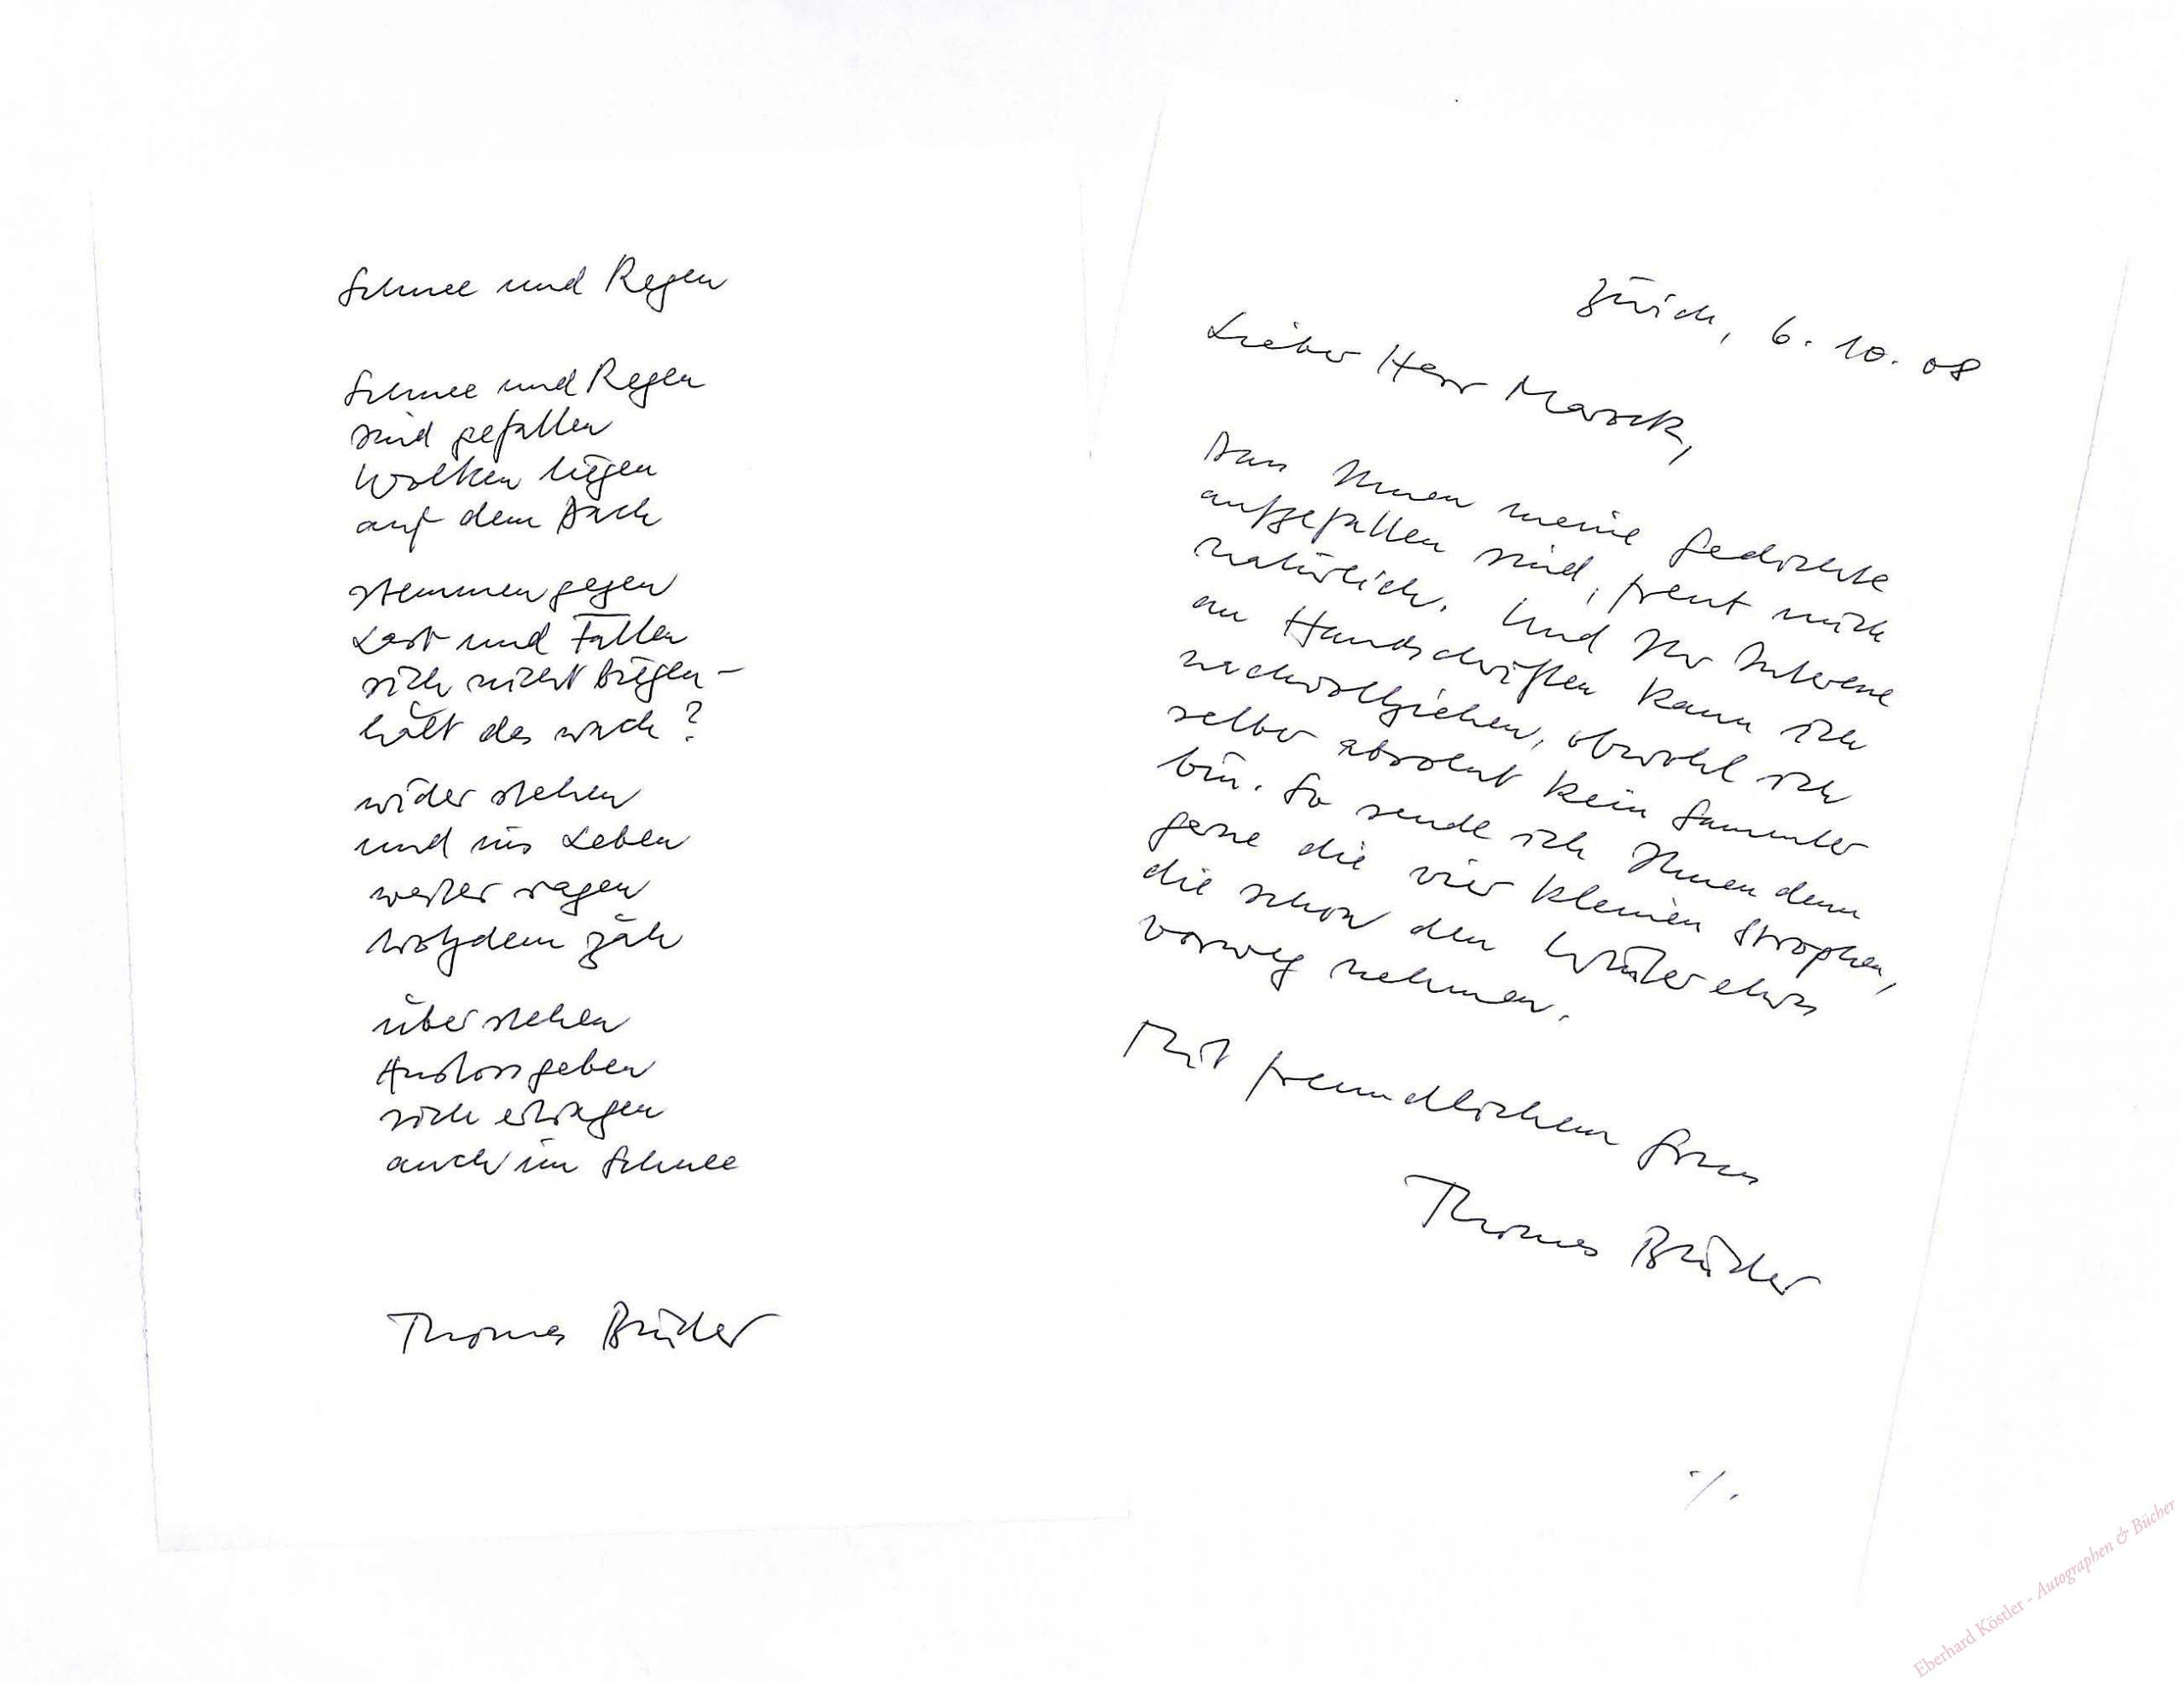 Schnee und Regen
Schnee und Regen
sind gefallen
Wolken liegen
auf dem Dach
stemmen gegen
Last und Fallen
sich nicht biegen –
hält das wach?
wider stehen
und ins Leben
weiter ragen
trotzdem zäh
über stehen
Anstoss geben
sich ertragen
auch im Schnee
Thomas Brüder
Zürich, 6. 10. 08
Lieber Herr
Dass Ihnen meine Gedichte
aufgefallen sind, freut mich
natürlich. Und Ihr Interesse
an Handschriften kann ich
nachvollziehen, obwohl ich
selber absolut kein Sammler
bin. So sende ich Ihnen denn
gerne die vier kleinen Strophen,
die schon den Winter etwas
vorweg nehmen.
Mit freundlichem Gruss
Thomas Brüder
./.
Eberhard Köstler - Autographen & Bücher